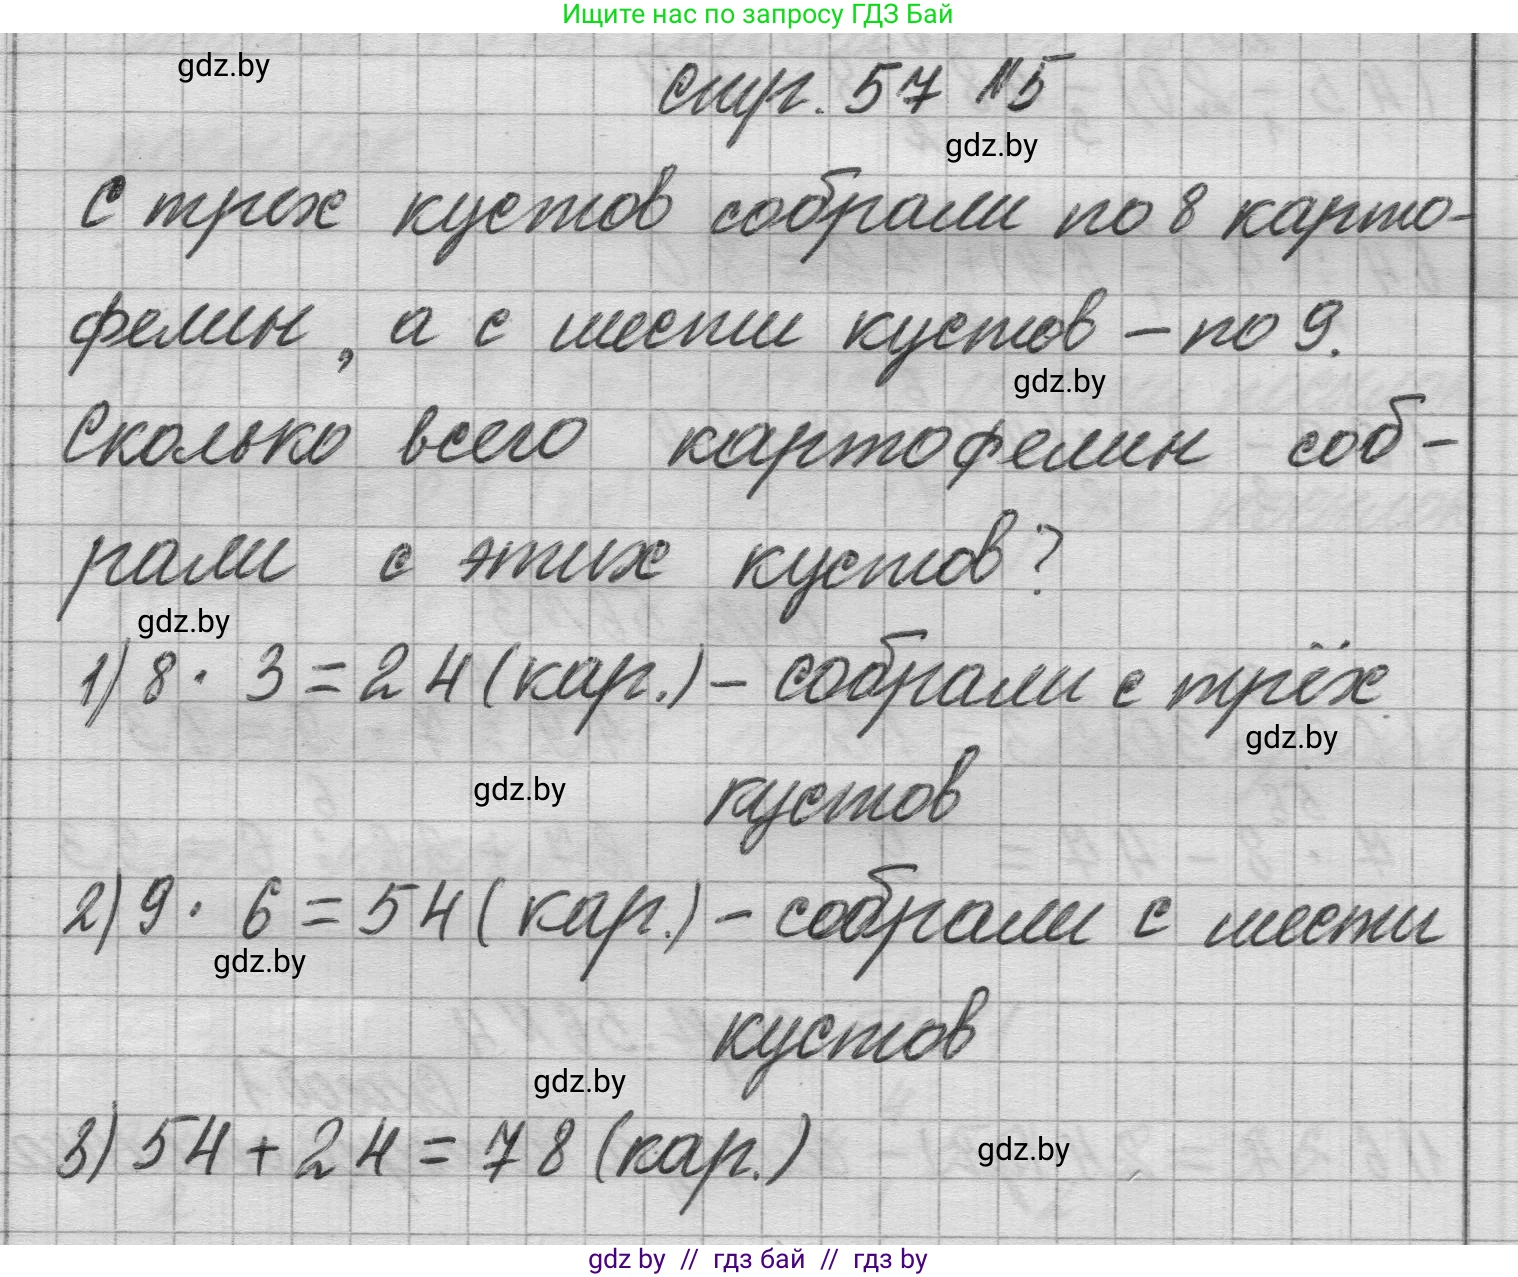 Ищите нас по запросу ГДЗ Бай
gdz.by
стр. 57 №5
gdz.by
С трех кустов собрали по 8 карто-
фелин, а с шести кустов – по 9.
gdz.by
Сколько всего картофелин соб-
рали с этих кустов?
gdz.by
1) 8 · 3 = 24 (кар.) – собрали с трёх
gdz.by
gdz.by
кустов
2) 9 · 6 = 54 (кар.) – собрали с шести
gdz.by
кустов
gdz.by
3) 54 + 24 = 78 (кар.)
gdz.by
gdz by // гдз бай // гдз by